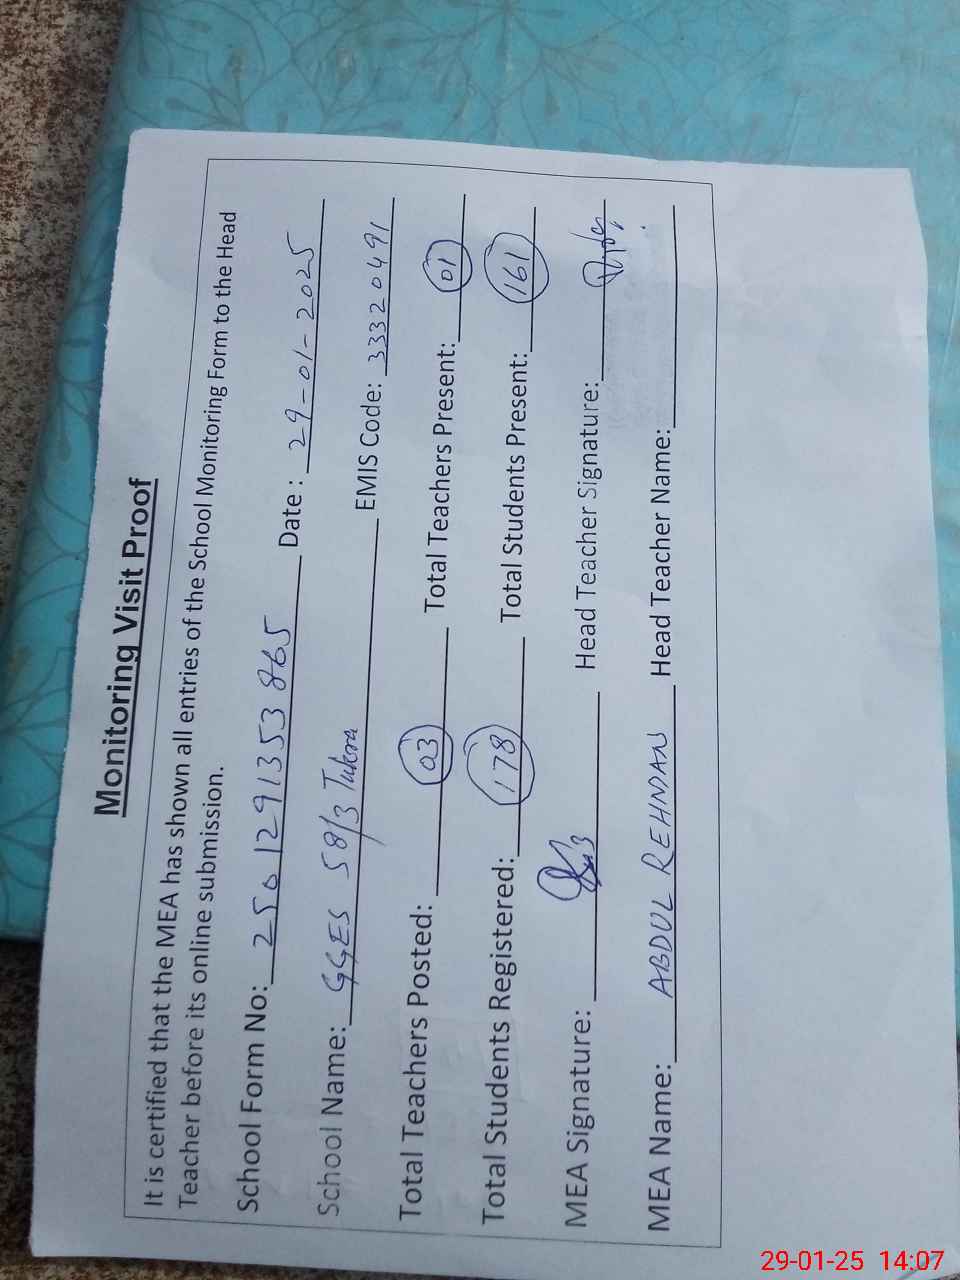 Monitoring Visit Proof
It is certified that the MEA has shown all entries of the School Monitoring Form to the Head
Teacher before its online submission.
School Form No: 2501291353865 Date : 29-01-2025
School Name: GGES 58/3 Tukra EMIS Code: 33320491
Total Teachers Posted: 03 Total Teachers Present: 01
Total Students Registered: 178 Total Students Present: 161
MEA Signature: Head Teacher Signature:
MEA Name: ABDUL REHMAN Head Teacher Name:
29-01-25 14:07